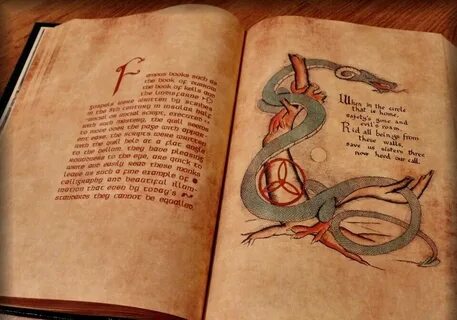 Famous books such as
the book of durrow
the book of kells and
the Lindisfarne
Gospels were written by scribes
in the 8th century in insular half
uncial or uncial script, executed
with such mastery, the quill seemed
to move over the page with appar-
ent ease, the scripts were written
with the quill held at a flat angle
to the they have pleasing
roundness to the eye, are quick to
write and easily read these monks
leave us such a fine example of
calligraphy and beautiful illum-
ination that even by today's
standards they cannot be equalled.
When in the circle
that is home,
safety's gone and
evil's roam.
Rid all beings from
these walls,
save us sisters three
now heed our call.